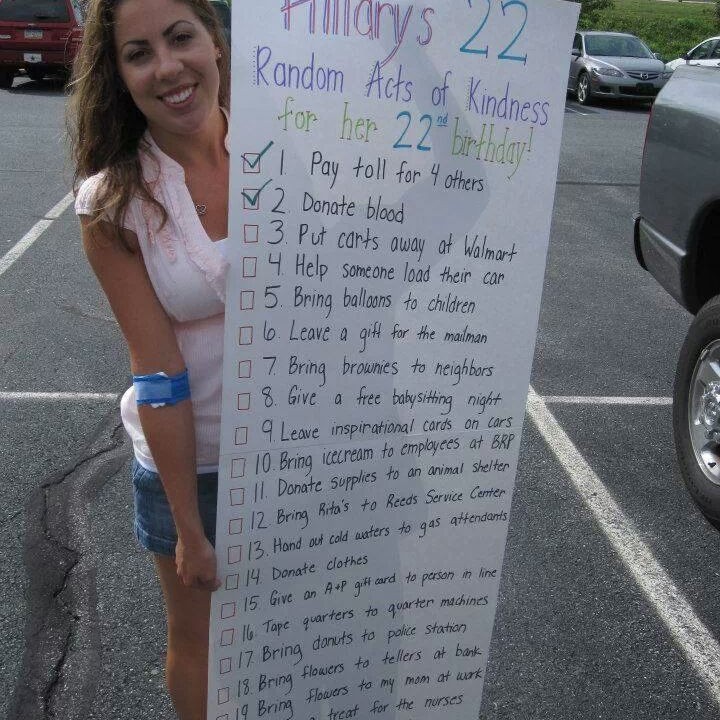 Hillary's 22
Random Acts of Kindness
for her 22nd birthday!
1. Pay toll for 4 others
2. Donate blood
3. Put carts away at Walmart
4. Help someone load their car
5. Bring balloons to children
6. Leave a gift for the mailman
7. Bring brownies to neighbors
8. Give a free babysitting night
9. Leave inspirational cards on cars
10. Bring icecream to employees at BRP
11. Donate supplies to an animal shelter
12. Bring Rita's to Reeds Service Center
13. Hand out cold waters to gas attendants
14. Donate clothes
15. Give an A+P gift card to person in line
16. Tape quarters to quarter machines
17. Bring donuts to police station
18. Bring flowers to tellers at bank
19. Bring flowers to my mom at work
treat for the nurses